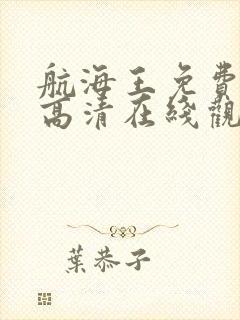 航海王免費
高清在綫觀
葉恭子